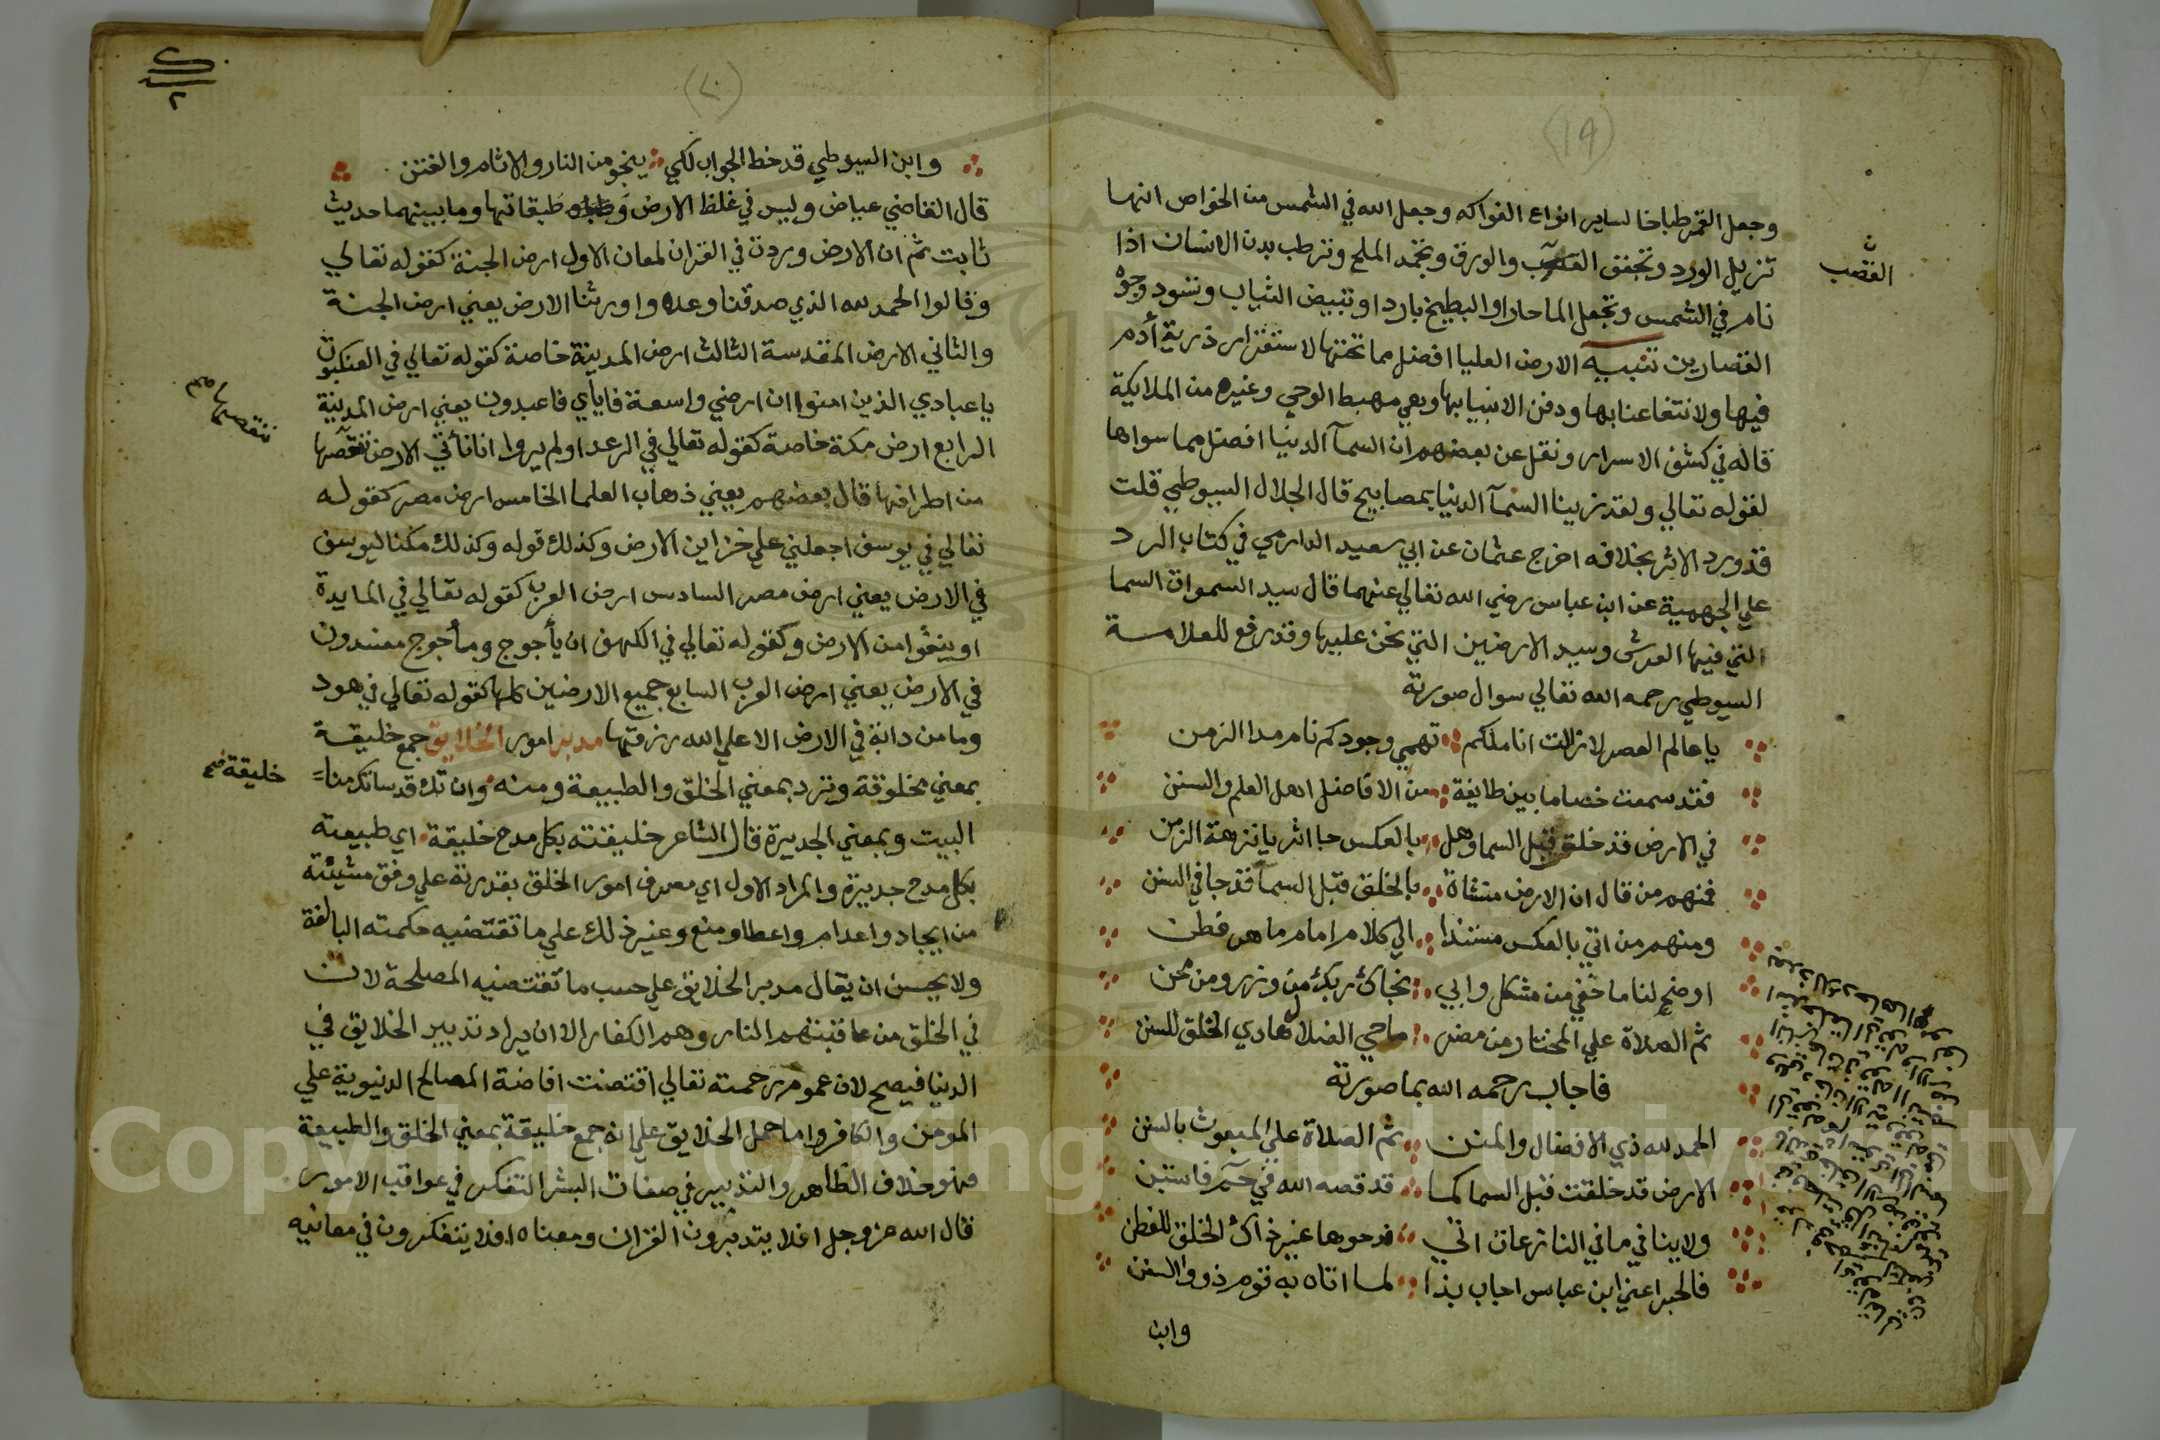 (١٩)
وجعل القمر طباخا لساير انواع الفواكه وجعل الله في الشمس من الخواص انها
تزيل الورد وتجفف القصب والورق وتجمد الملح وترطب بدن الانسان اذا
القصب
نام في الشمس وتجعل الما حارا والبطيخ باردا وتبيض الثياب وتسود وجوه
القصارين تنبيه الارض العليا افضل مما تحتها لاستقرار ذرية أدم
فيها ولانتفاعنا بها ودفن الانبيا بها وهي مهبط الوحي وغيره من الملايكة
قاله في كشف الاسرار ونقل عن بعضهم ان السمآ الدنيا افضل مما سواها
لقوله تعالي ولقد زينا السمآ الدنيا بمصابيح قال الجلال السيوطي قلت
قد ورد الاثر بخلافه اخرج عثمان عن ابي سعيد الدارمي في كتاب الرد
علي الجهمية عن ابن عباس رضي الله تعالي عنهما قال سيد السموات السما
التي فيها العرش وسيد الارضين التي نحن عليها وقد رفع للعلامة
السيوطي رحمه الله تعالي سوال صورته
يا عالم العصر لا زالت انا ملكم تهمي وجودكم نام مدا الزمن
فقد سمعت خصاما بين طايفة من الافاضل اهل العلم والسنن
في الارض قد خلقت قبل السما وهل بالعكس جا اثر يا نزهة الزمن
فمنهم من قال ان الارض منشاة بالخلق قبل السمآ قد جا في السنن
ومنهم من اتي بالعكس مستندا الي كلام امام ماهر فطن
اوضح لنا ما خفي من مشكل وابي نجاك ربك من وزر ومن محن
ثم الصلاة علي المختار من مضر ماحي الضلال هادي الخلق للسنن
فاجاب رحمه الله بما صورته
الحمد لله ذي الافضال والمنن ثم الصلاة علي المبعوث بالسنن
الارض قد خلقت قبل السما كما قد قصه الله في حـٓم فاستبن
ولا ينافي ما في النازعات اتي فدحوها غير ذاك الخلق للفطن
فالحبر اعني ابن عباس اجاب بذا لما اتاه به قوم ذووا السنن
وابن
(٢٠)
وابن السيوطي قد خط الجواب لكي ينجو من النار والاثام والفتن
قال القاضي عياض وليس في غلظ الارض وطبقاتها وما بينهما حديث
ثابت ثم ان الارض وردت في القران لمعان الاول ارض الجنة كقوله تعالي
وقالوا الحمد لله الذي صدقنا وعده واورثنا الارض يعني ارض الجنة
والثاني الارض المقدسة الثالث ارض المدينة خاصة كقوله تعالي في العنكبوت
يا عبادي الذين امنوا ان ارضي واسعة فاياي فاعبدون يعني ارض المدينة
الرابع ارض مكة خاصة كقوله تعالي في الرعد اولم يروا انا نأتي الارض ننقصها
ننقصها صح
من اطرافها قال بعضهم يعني ذهاب العلما الخامس ارض مصر كقوله
تعالي في يوسف اجعلني علي خزاين الارض وكذلك قوله وكذلك مكنا ليوسف
في الارض يعني ارض مصر السادس ارض العرب كقوله تعالي في المايدة
او ينفوا من الارض وكقوله تعالي في الكهف ان يأجوج ومأجوج مفسدون
في الارض يعني ارض العرب السابع جميع الارضين كلها كقوله تعالي في هود
وما من دابة في الارض الا علي الله رزقها مدبر امور الخلايق جمع خليقة
خليقة صح
بمعني مخلوقة وترد بمعني الخلق والطبيعة ومنه وان تك قد ساتك منا
البيت وبمعني الجديرة قال الشاعر خليقته بكل مدح خليقة اي طبيعته
بكل مدح جديرة والمراد الاول اي مصرف امور الخلق بقدرته علي وفق مشيئته
من ايجاد واعدام واعطا ومنع وغير ذلك علي ما تقتضيه حكمته البالغة
ولا يحسن ان يقال مدبر الخلايق علي حسب ما تقتضيه المصلحة لان
في الخلق من عاقبتهم النار وهم الكفار الا ان يراد تدبير الخلايق في
الدنيا فيصح لان عموم رحمته تعالي اقتضت افاضة المصالح الدنيوية علي
المومن والكافر واما حمل الخلايق علي انه جمع خليقة بمعني الخلق والطبيعة
فهو خلاف الظاهر والتدبير في صفات البشر التفكر في عواقب الامور
قال الله عز وجل افلا يتدبرون القران ومعناه افلا يتفكرون في معانيه
Copyright © King Saud University